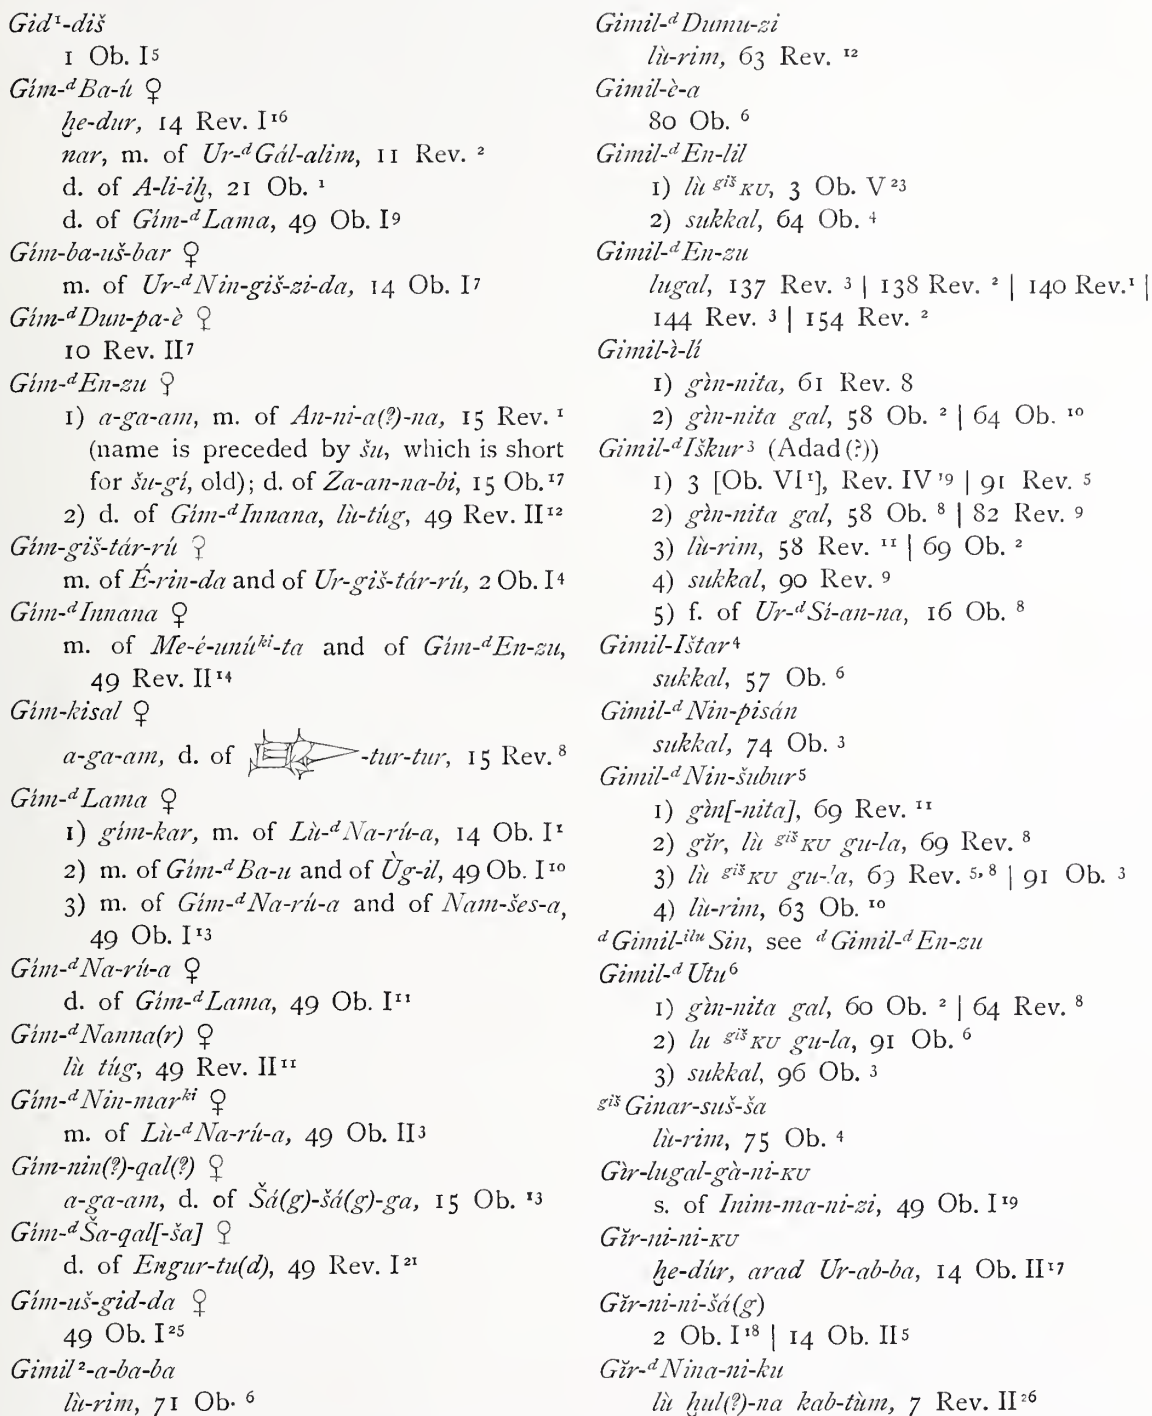 Gid¹-diš
1 Ob. I⁵
Gím-ᵈBa-ú ♀
ḫe-dur, 14 Rev. I¹⁶
nar, m. of Ur-ᵈGál-alim, 11 Rev. ²
d. of A-li-iḫ, 21 Ob. ¹
d. of Gím-ᵈLama, 49 Ob. I⁹
Gím-ba-uš-bar ♀
m. of Ur-ᵈNin-giš-zi-da, 14 Ob. I⁷
Gím-ᵈDun-pa-è ♀
10 Rev. II⁷
Gím-ᵈEn-zu ♀
1) a-ga-am, m. of An-ni-a(?)-na, 15 Rev. ¹
(name is preceded by šu, which is short
for šu-gí, old); d. of Za-an-na-bi, 15 Ob. ¹⁷
2) d. of Gím-ᵈInnana, lù-túg, 49 Rev. II¹²
Gím-giš-tár-rú ♀
m. of É-rin-da and of Ur-giš-tár-rú, 2 Ob. I⁴
Gím-ᵈInnana ♀
m. of Me-é-unúᵏⁱ-ta and of Gím-ᵈEn-zu,
49 Rev. II¹⁴
Gím-kisal ♀
a-ga-am, d. of -tur-tur, 15 Rev. ⁸
Gím-ᵈLama ♀
1) gím-kar, m. of Lù-ᵈNa-rú-a, 14 Ob. I¹
2) m. of Gím-ᵈBa-u and of Ùg-il, 49 Ob. I¹⁰
3) m. of Gím-ᵈNa-rú-a and of Nam-šes-a,
49 Ob. I¹³
Gím-ᵈNa-rú-a ♀
d. of Gím-ᵈLama, 49 Ob. I¹¹
Gím-ᵈNanna(r) ♀
lù túg, 49 Rev. II¹¹
Gím-ᵈNin-marᵏⁱ ♀
m. of Lù-ᵈNa-rú-a, 49 Ob. II³
Gím-nin(?)-qal(?) ♀
a-ga-am, d. of Šá(g)-šá(g)-ga, 15 Ob. ¹³
Gím-ᵈŠa-qal[-ša] ♀
d. of Engur-tu(d), 49 Rev. I²¹
Gím-uš-gid-da ♀
49 Ob. I²⁵
Gimil²-a-ba-ba
lù-rim, 71 Ob. ⁶
Gimil-ᵈDumu-zi
lù-rim, 63 Rev. ¹²
Gimil-è-a
80 Ob. ⁶
Gimil-ᵈEn-lil
1) lù ᵍⁱšKU, 3 Ob. V²³
2) sukkal, 64 Ob. ⁴
Gimil-ᵈEn-zu
lugal, 137 Rev. ³ | 138 Rev. ² | 140 Rev.¹ |
144 Rev. ³ | 154 Rev. ²
Gimil-ì-lí
1) gìn-nita, 61 Rev. 8
2) gìn-nita gal, 58 Ob. ² | 64 Ob. ¹⁰
Gimil-ᵈIškur³ (Adad(?))
1) 3 [Ob. VI¹], Rev. IV¹⁹ | 91 Rev. ⁵
2) gìn-nita gal, 58 Ob. ⁸ | 82 Rev. ⁹
3) lù-rim, 58 Rev. ¹¹ | 69 Ob. ²
4) sukkal, 90 Rev. ⁹
5) f. of Ur-ᵈSí-an-na, 16 Ob. ⁸
Gimil-Ištar⁴
sukkal, 57 Ob. ⁶
Gimil-ᵈNin-pisán
sukkal, 74 Ob. ³
Gimil-ᵈNin-šubur⁵
1) gìn[-nita], 69 Rev. ¹¹
2) gĭr, lù ᵍⁱšKU gu-la, 69 Rev. ⁸
3) lù ᵍⁱšKU gu-la, 69 Rev. ⁵,⁸ | 91 Ob. ³
4) lù-rim, 63 Ob. ¹⁰
ᵈGimil-ⁱˡᵘSin, see ᵈGimil-ᵈEn-zu
Gimil-ᵈUtu⁶
1) gìn-nita gal, 60 Ob. ² | 64 Rev. ⁸
2) lu ᵍⁱšKU gu-la, 91 Ob. ⁶
3) sukkal, 96 Ob. ³
ᵍⁱšGinar-suš-ša
lù-rim, 75 Ob. ⁴
Gìr-lugal-gà-ni-KU
s. of Inim-ma-ni-zi, 49 Ob. I¹⁹
Gĭr-ni-ni-KU
ḫe-dúr, arad Ur-ab-ba, 14 Ob. II¹⁷
Gĭr-ni-ni-šá(g)
2 Ob. I¹⁸ | 14 Ob. II⁵
Gĭr-ᵈNina-ni-ku
lù ḫul(?)-na kab-tùm, 7 Rev. II²⁶